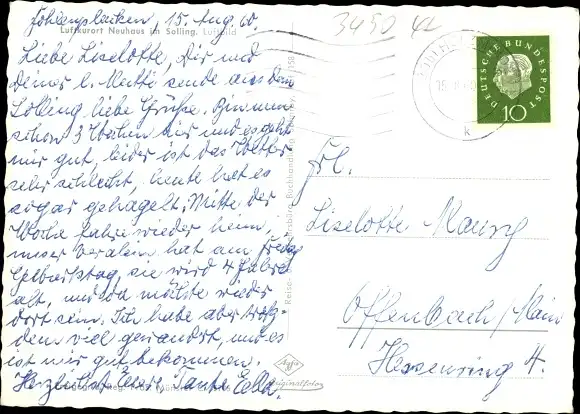 15. Aug. 60.
3450
Luftkurort Neuhaus im Solling. Luftbild
Liebe Liselotte, Dir und
Deiner l. Mutti sende aus dem
Solling liebe Grüße. Bin nun
schon 3 Wochen hier und es geht
mir gut, leider ist das Wetter
sehr schlecht, heute hat es
sogar gehagelt. Mitte der
Woche fahre wieder heim,
unser hat am Freitag
Geburtstag, sie wird 4 Jahre
alt, und da möchte wieder
dort sein. Ich habe aber trotz-
dem viel gewandert, und es
ist mir gut bekommen.
Herzlichst Eure Tante Ella.
DEUTSCHE BUNDESPOST
10
15.
k
Frl.
Liselotte
Offenbach/Main
Hessenring 4.
Agfa
Originalfoto